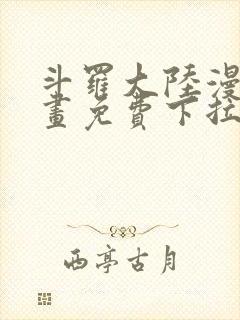 斗羅大陸漫
畫免費下拉
西亭古月